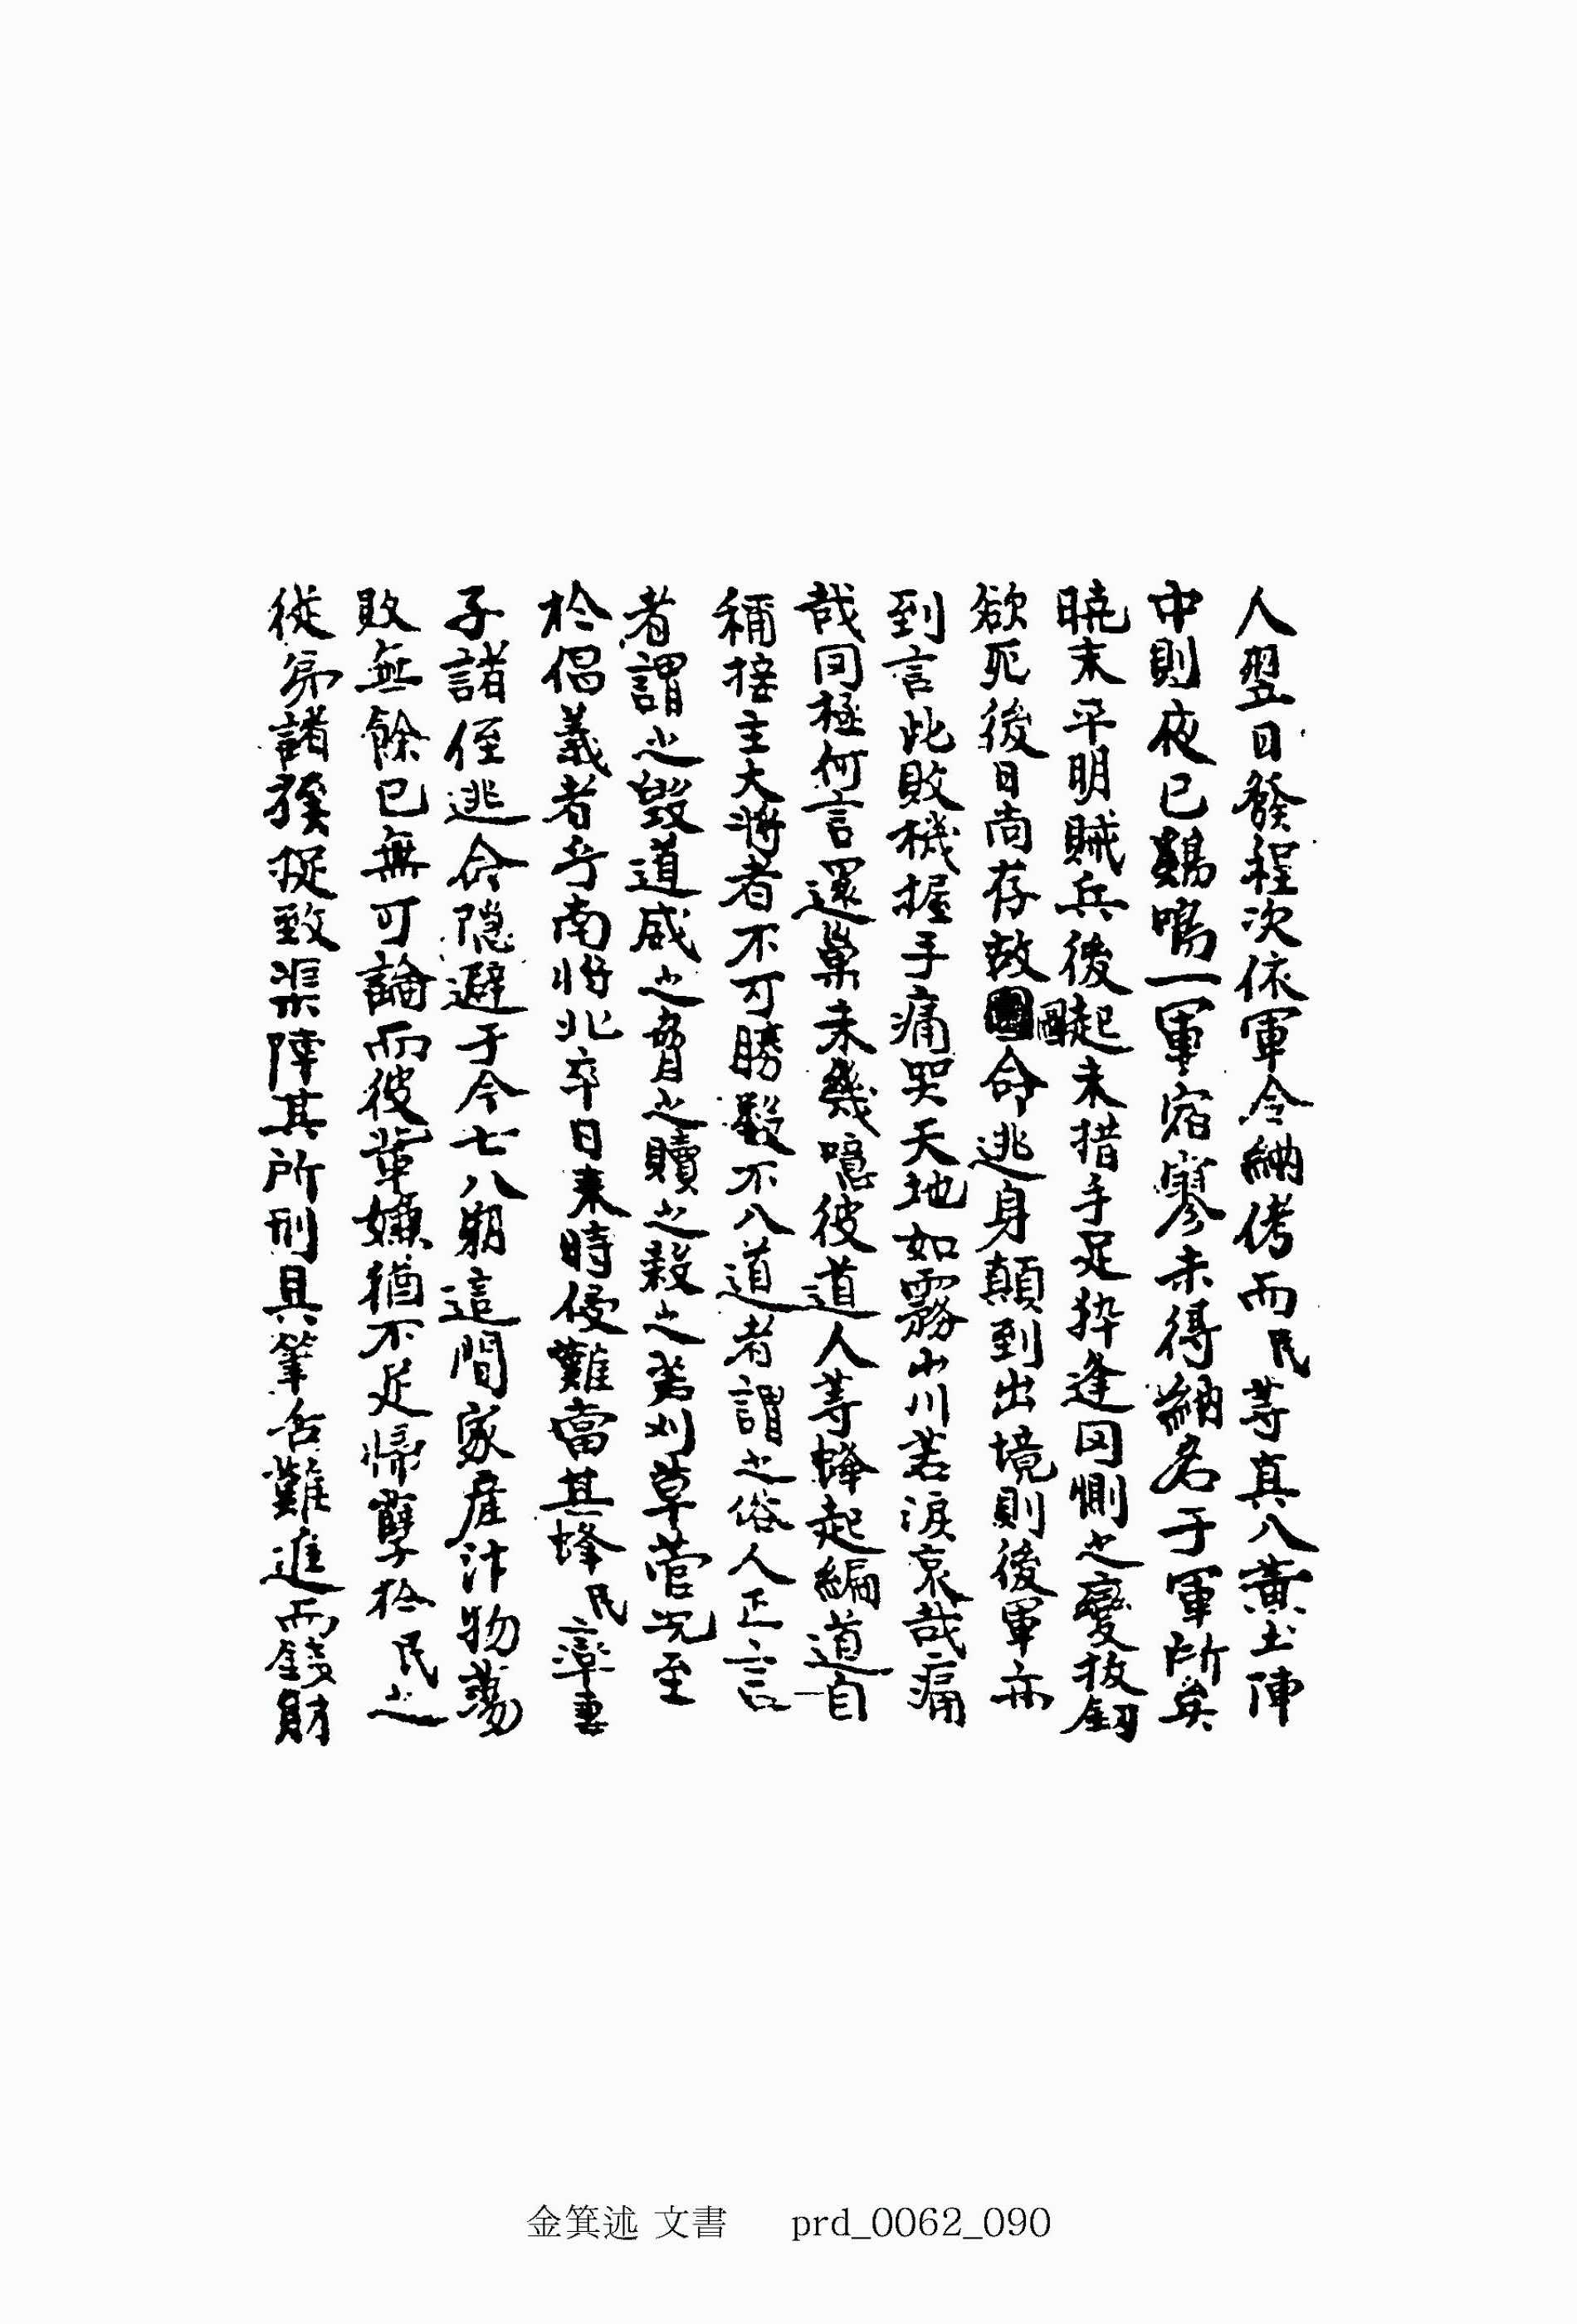 人翌日發程次依軍令納侤而民等真八黃土陣
中則夜已鷄鳴一軍宿寥未得納名于軍所矣
曉未平明賊兵後起未措手足猝逢罔惻之變拔釼
欲死後日尚存故圖命逃身顛到出境則後軍亦
到言此敗機握手痛哭天地如霧山川若淚哀哉痛
哉罔極何言還巢未幾噫彼道人等蜂起編道自
稱接主大將者不可勝數不八道者謂之俗人正言
者謂之毀道威之脅之贖之殺之若刈草菅况至
於倡義者乎南將北卒日來時侵難當其蜂民率妻
子諸侄逃命隱避于今七八朔這間家産汁物蕩
敗無餘已無可論而彼輩嫌猶不足歸孽於民之
從弟諸族捉致渠陣其所刑具筆舌難進而錢財
金箕述 文書 prd_0062_090